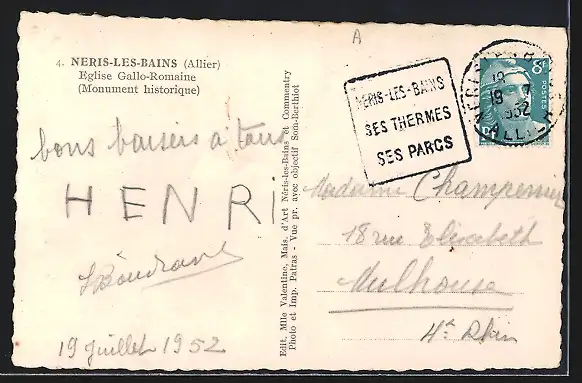 4. NERIS-LES-BAINS (Allier)
Eglise Gallo-Romaine
(Monument historique)
bons baisers à tous
HENRI
19 juillet 1952
Edit. Mlle Valentine, Mais. d'Art Néris-les-Bains et Commentry
Photo et Imp. Patras - Vue pr. avec objectif Som-Berthiot
A
NERIS-LES-BAINS
SES THERMES
SES PARCS
8F
POSTES
19
1952
ALLIER
Madame
18 rue Elisabeth
Mulhouse
Ht Rhin